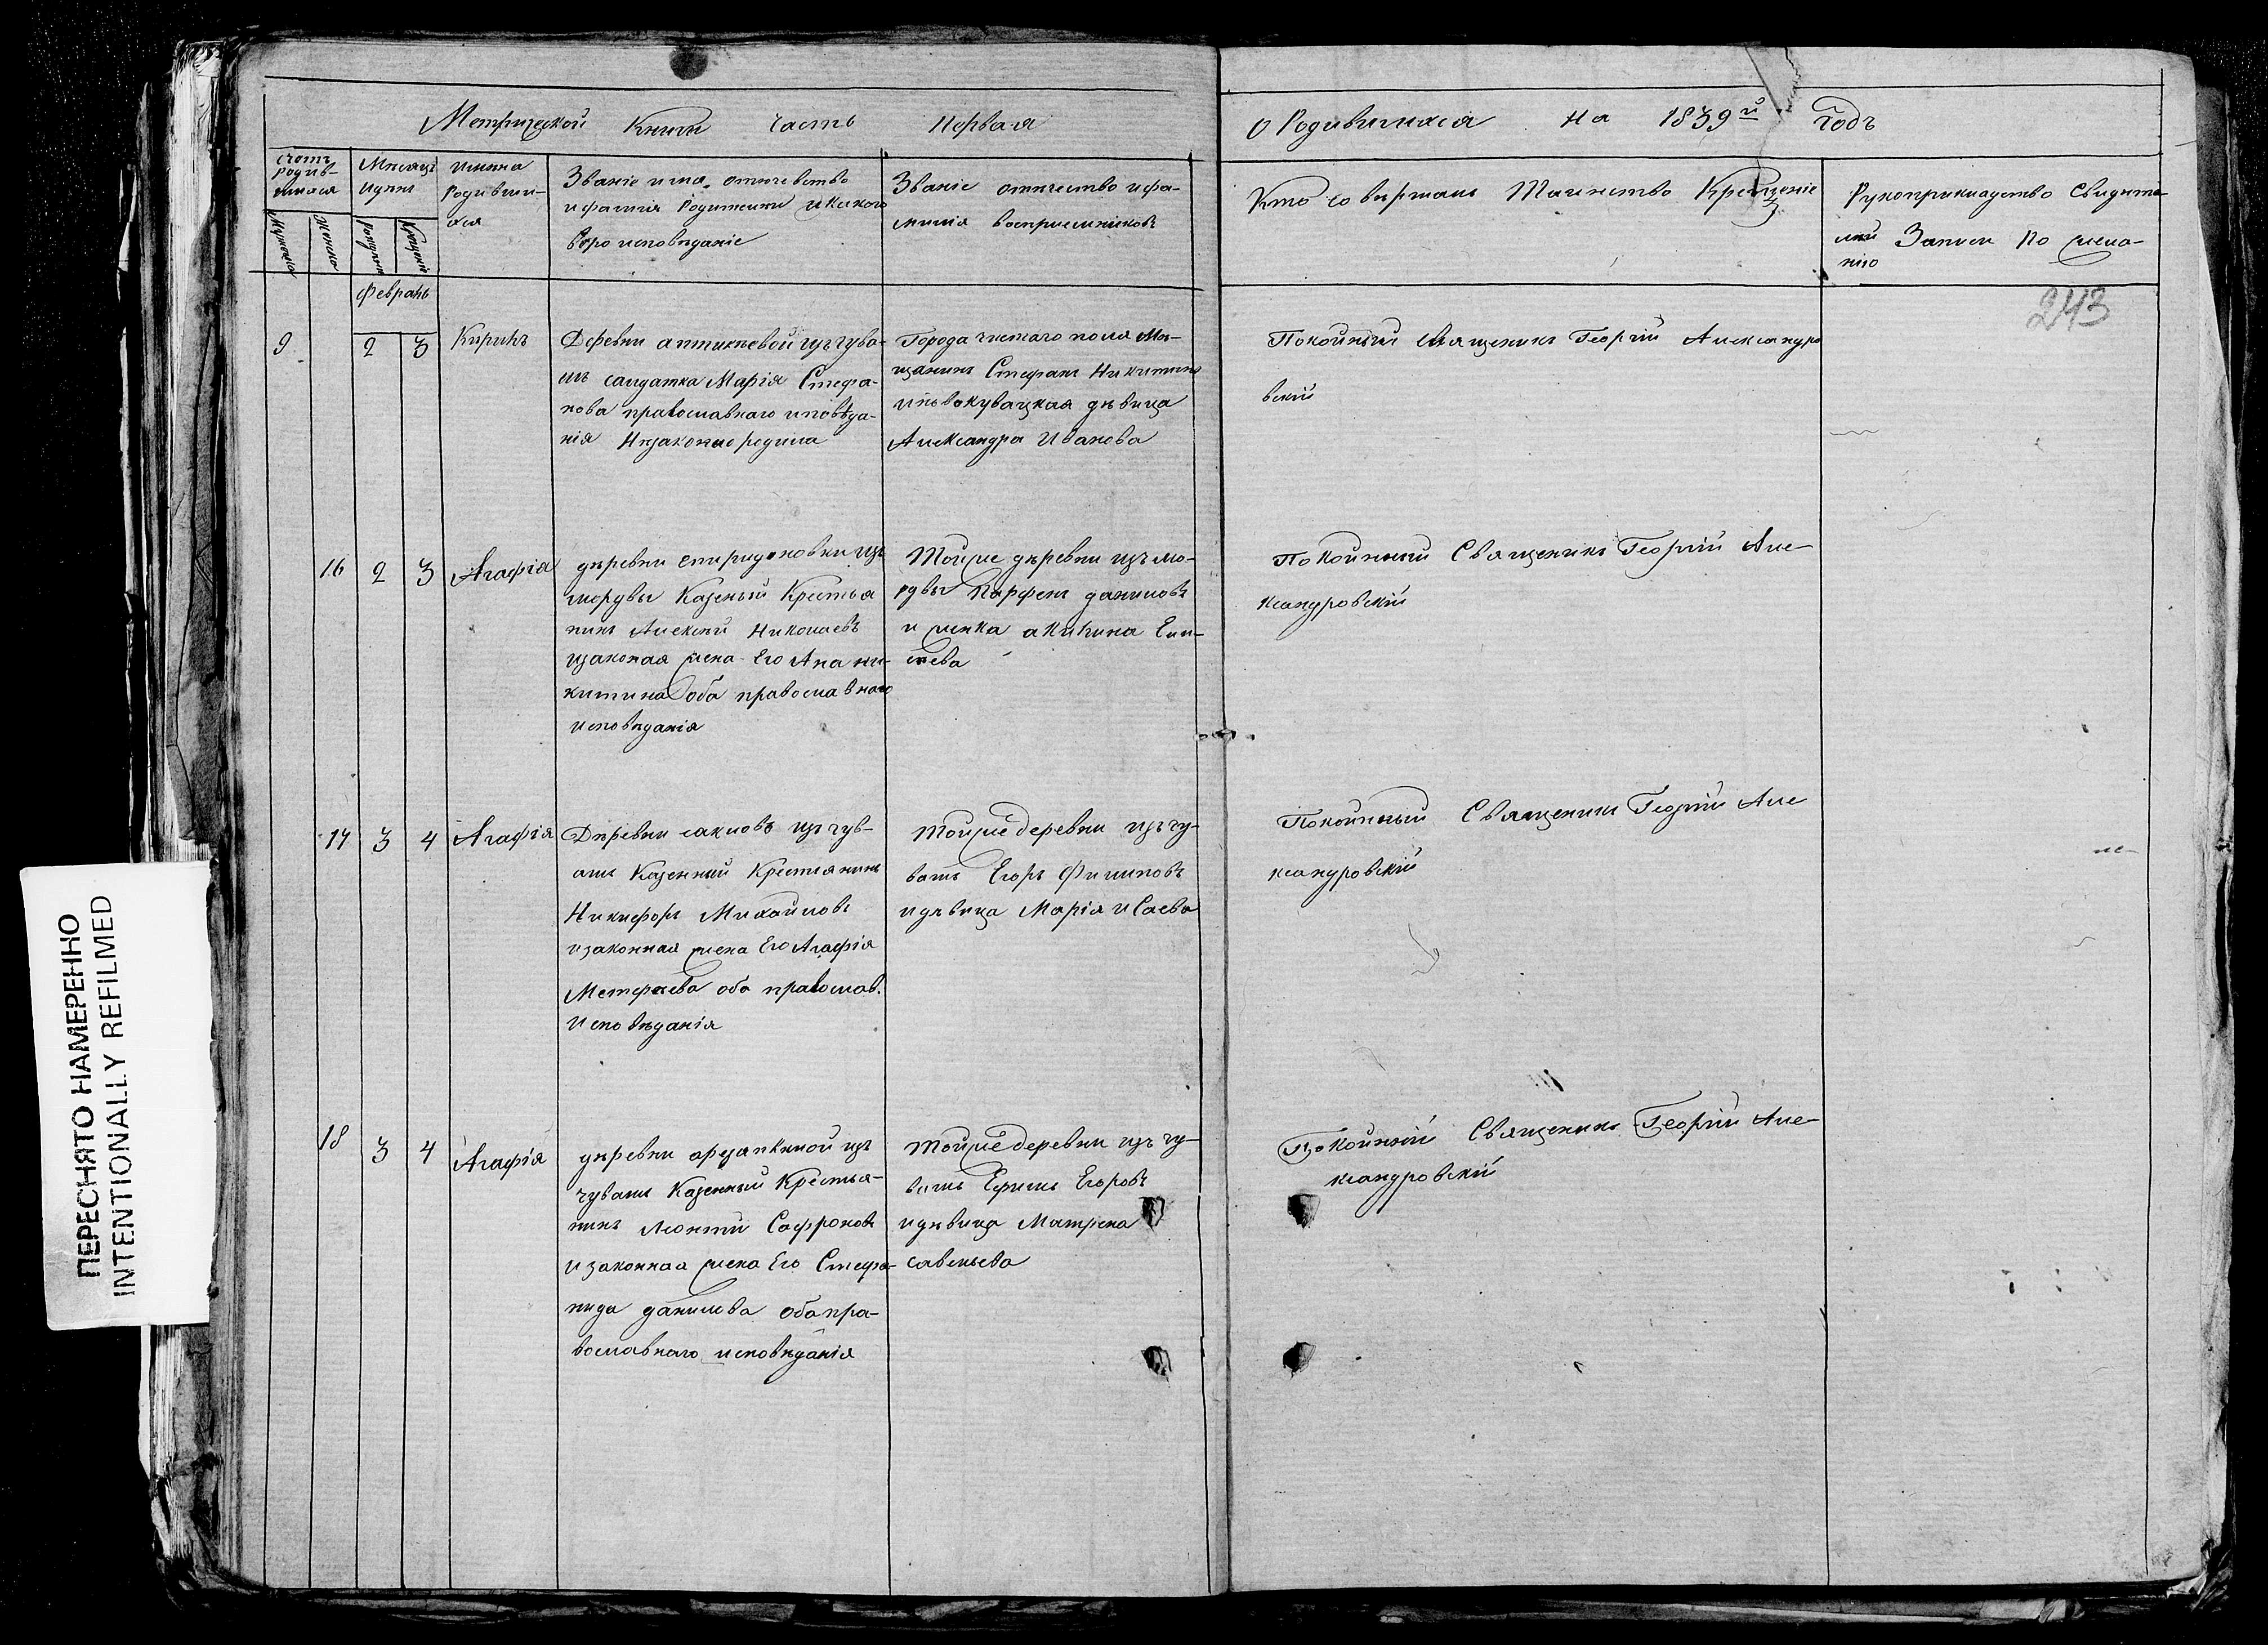 Метрической Книги Часть Первая
о Родившихся на 1839й Годъ
счетъ родив-шихся
Мужеска
Женска
Месяцъ и день
Рожденія
Крещенія
имена Родивши-хся
Званіе имя, отечевство
и фамилія Родители и Какого
веро исповѣданіе
Званіе отечество и фа-
милія воспріемниковъ
Кто совершалъ Таинство Крещеніе
Рукоприкладство Свидете-
лей Записи По жела-
нію
243
Февраль
9 2 3 Кирилъ
Деревни аптикѣевой изъ чува-
шъ салдатка Марія Стефа-
нова православнаго иповѣда-
нія Незаконно родила
Города чистаго поля Мѣ-
щанинъ Стефанъ Никитинъ
дѣвица
Александра Иванова
Покойный Священикъ Георгій Александро
вскій
16 2 3 Агафія
деревни спиридоновки изъ
мордвы Казеный Крестья
нинъ Алексѣй Николаевъ
и законая жена Его Ана ни-
китина оба православнаго
исповѣданія
Тойже деревни изъ мо-
рдвы Парфенъ даниловъ
и женка акилина Ели-
сеева
Покойный Священикъ Георгій Але-
ксандровскій
17 3 4 Агафія
Деревни сакловъ изъ чув-
ашъ Казенный Крестьянинъ
Никифоръ Михайловъ
и законная жена Его Агафія
Метрфаева оба православ.
Исповѣданія
Тойже деревни изъ чу-
вашъ Егоръ Филиповъ
и дѣвица Марія Исаева
Покойный Священикъ Георгій Але
ксандровскій
18 3 4 Агафія
деревни ардапкиной изъ
чувашъ Казенный Крестья-
нинъ Леонтій Сафроновъ
и законная жена Его Стефа-
нида данилова оба пра-
вославнаго исповѣданія
Тойже деревни изъ чу-
вашъ Ефимъ Егоровъ
и дѣвица Матрена
савельева
Покойный Священикъ Георгій Але-
ксандровскій
ПЕРЕСНЯТО НАМЕРЕННО
INTENTIONALLY REFILMED